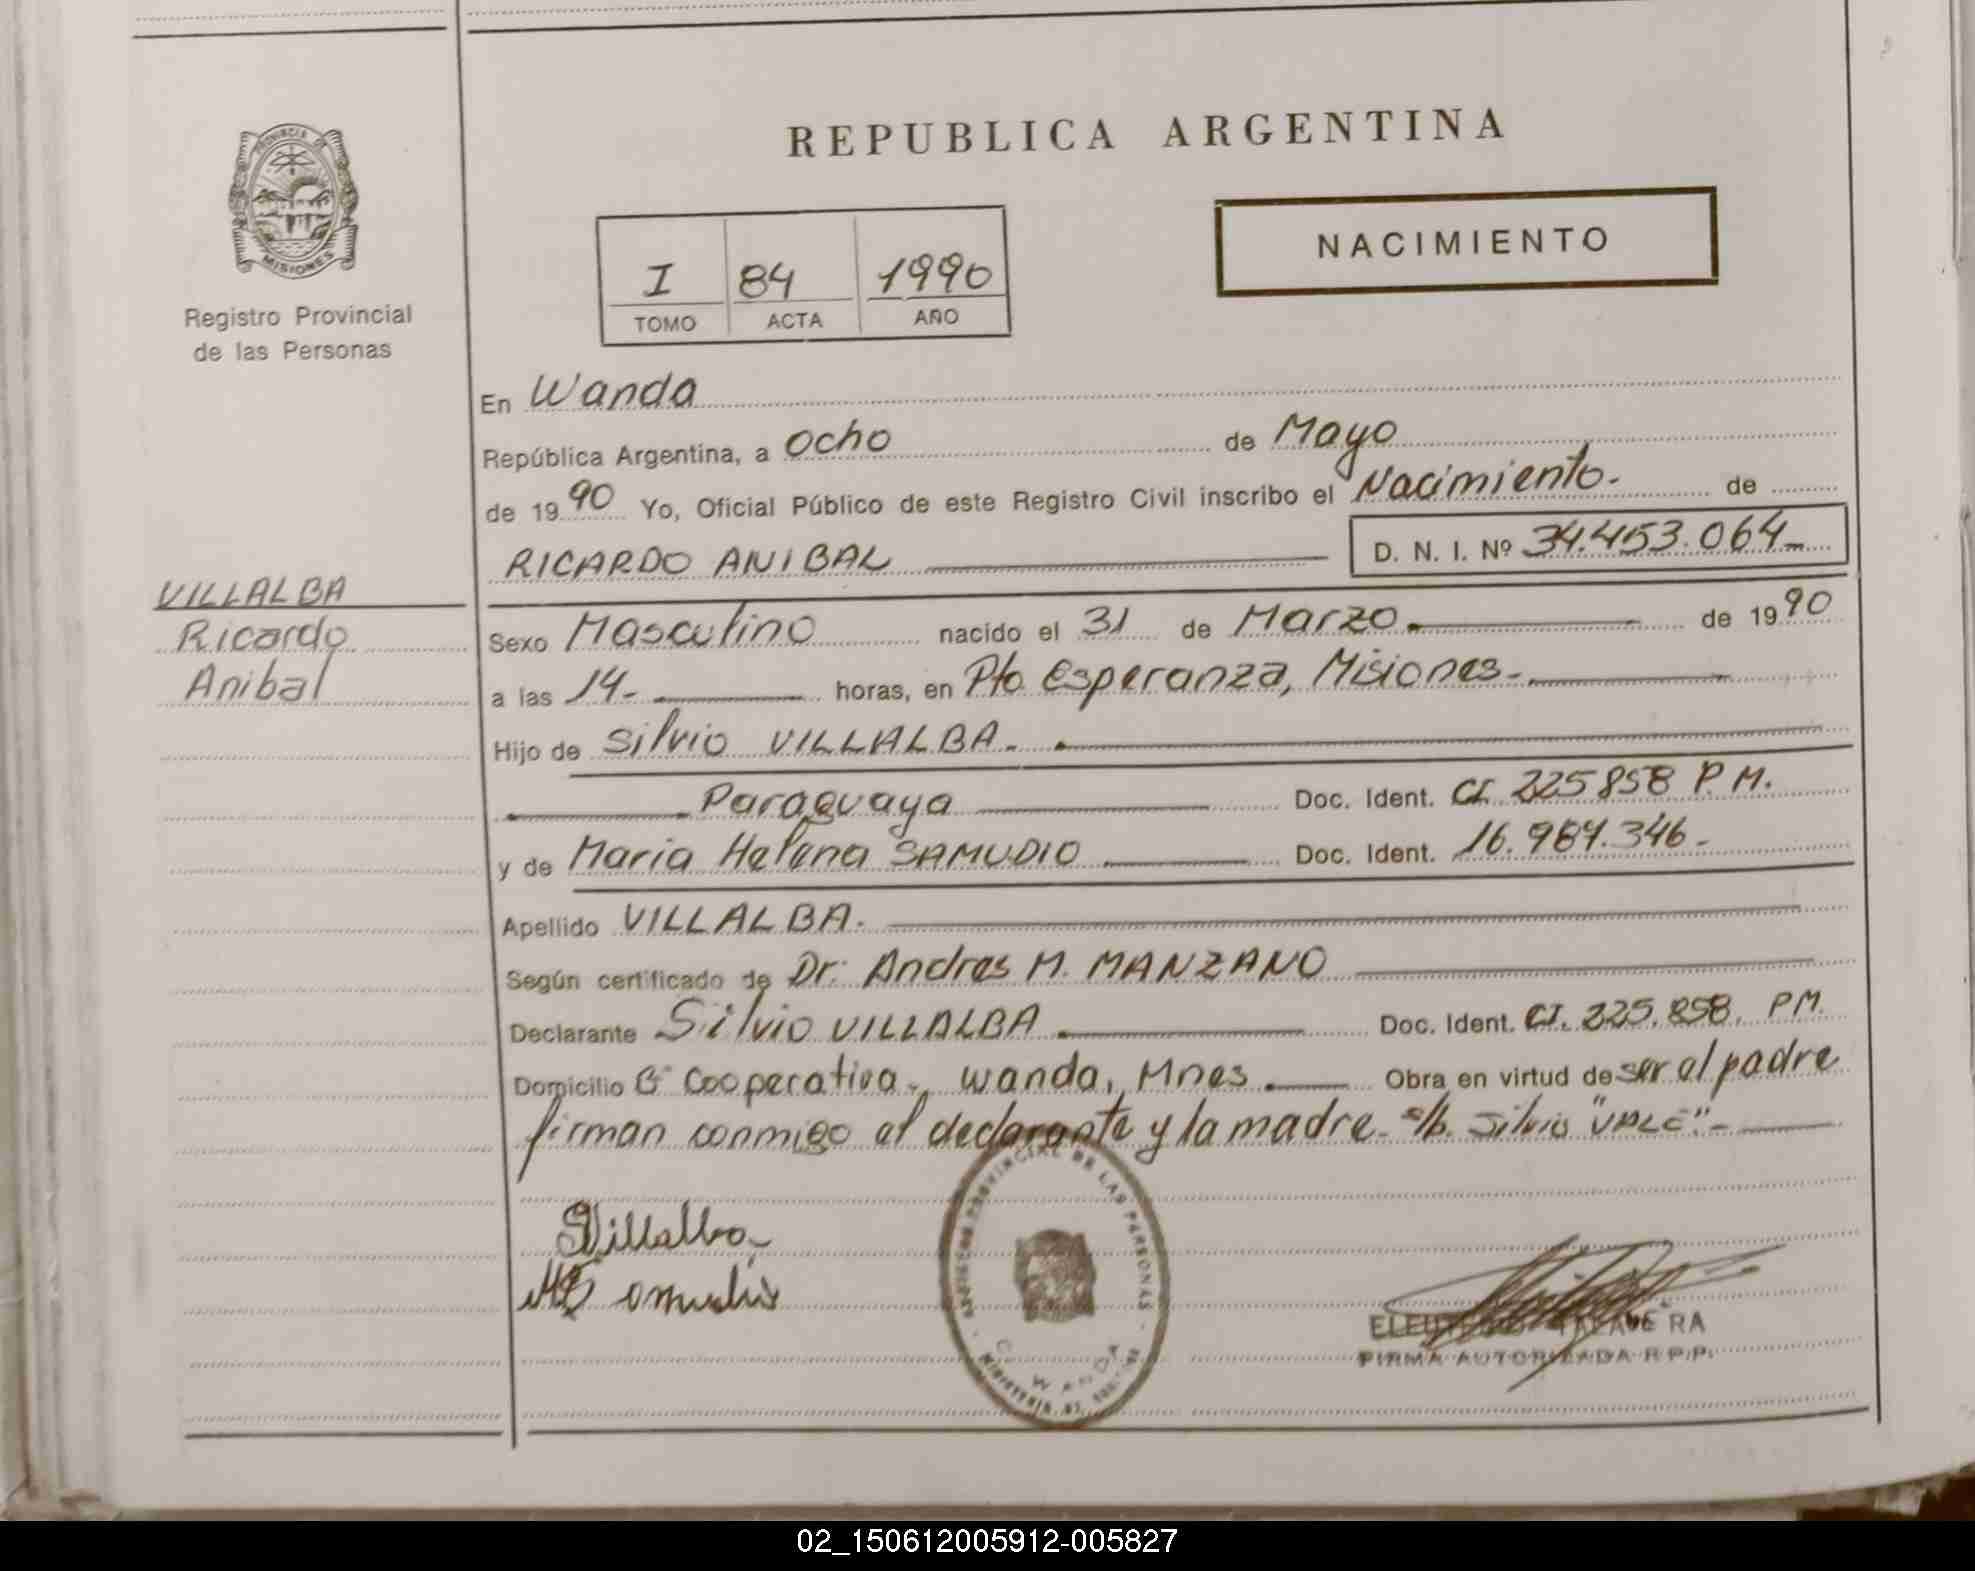 PROVINCIA DE
MISIONES
Registro Provincial
de las Personas
VILLALBA
Ricardo
Anibal
REPUBLICA ARGENTINA
I 84 1990
TOMO ACTA AÑO
NACIMIENTO
En Wanda
República Argentina, a Ocho de Mayo
de 1990 Yo, Oficial Público de este Registro Civil inscribo el Nacimiento. de
RICARDO ANIBAL D. N. I. Nº 34.453.064
Sexo Masculino nacido el 31 de Marzo de 1990
a las 14- horas, en Pto Esperanza, Misiones-
Hijo de Silvio VILLALBA-
Paraguaya Doc. Ident. CI 225858 P.M.
y de Maria Helena SAMUDIO Doc. Ident. 16.987.346-
Apellido VILLALBA.
Según certificado de Dr. Andres M. MANZANO
Declarante Silvio VILLALBA Doc. Ident. CI. 225.858. PM.
Domicilio Bº Cooperativa, Wanda, Mnes. Obra en virtud de ser el padre
firman conmigo el declarante y la madre- s/b. Silvio "VALE".-
SVillalba
PROVINCIAL DE LAS PERSONAS
WANDA
TALAVERA
FIRMA AUTORIZADA R.P.P.
02_150612005912-005827